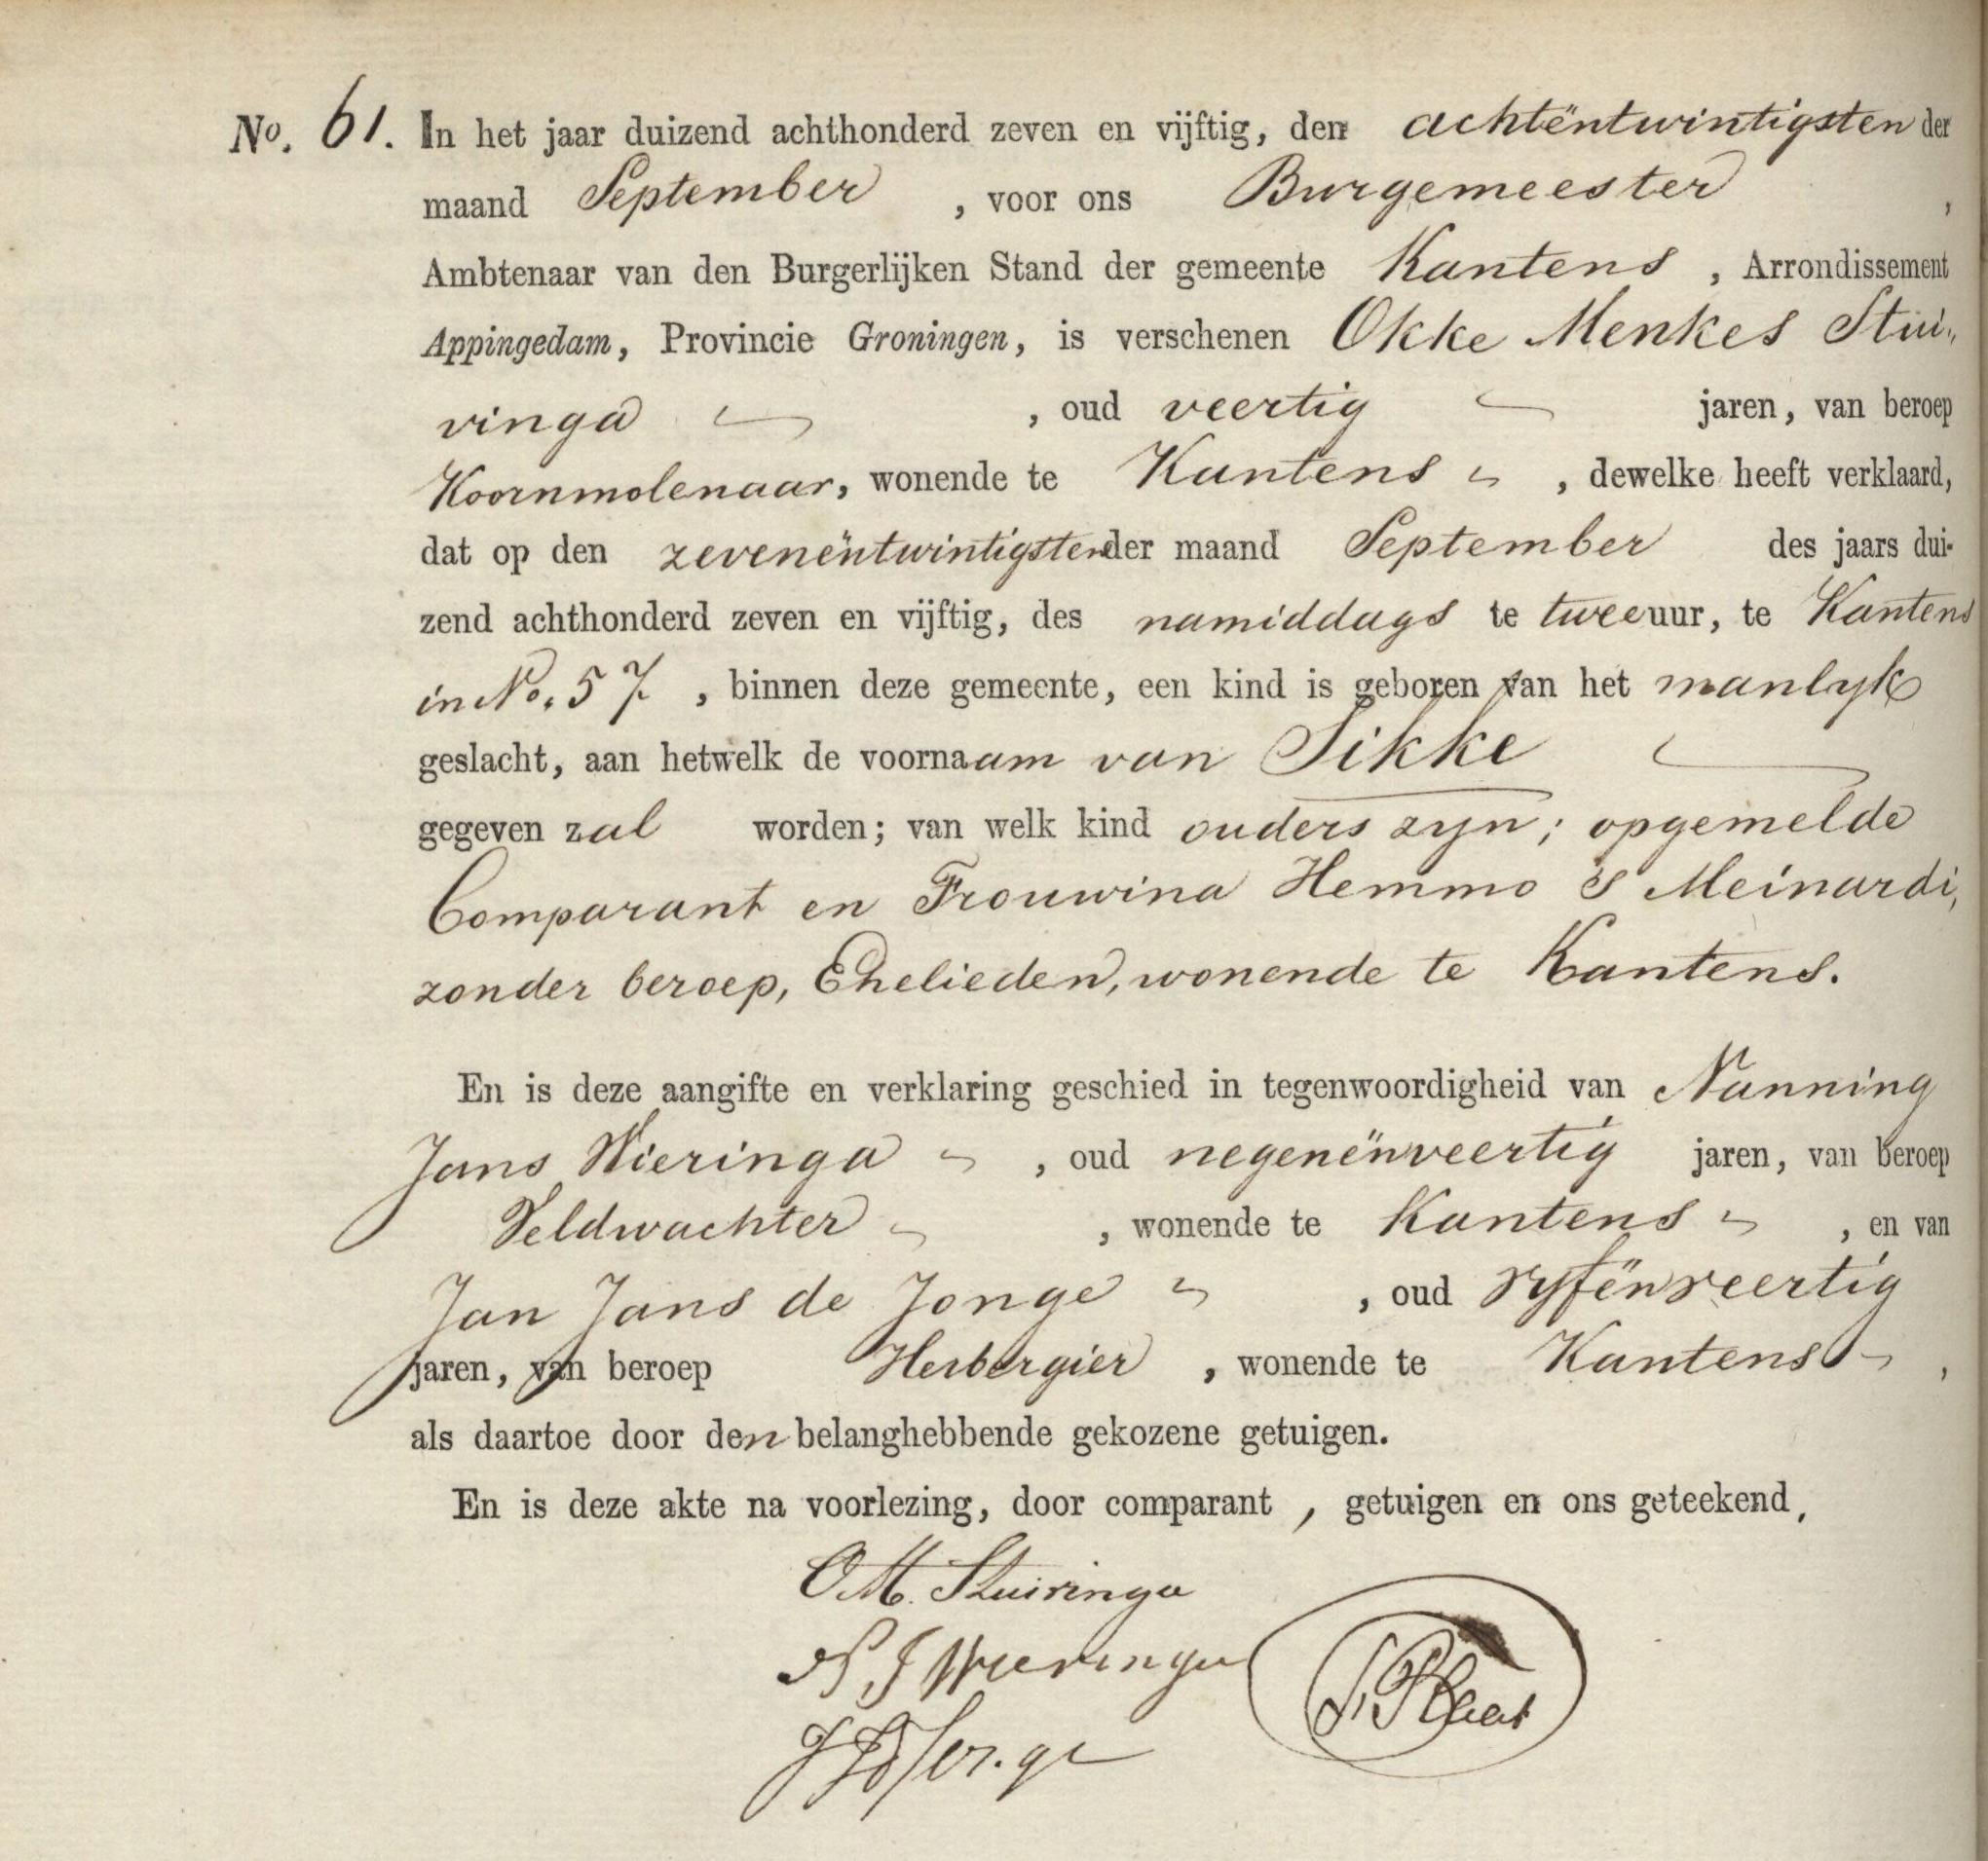 No. 61. In het jaar duizend achthonderd zeven en vijftig, den achtëntwintigsten der
maand September , voor ons Burgemeester ,
Ambtenaar van den Burgerlijken Stand der gemeente Kantens , Arrondissement
Appingedam, Provincie Groningen, is verschenen Okke Menkes Stui„
vinga , oud veertig jaren, van beroep
Koornmolenaar, wonende te Kantens , dewelke heeft verklaard,
dat op den zevenëntwintigsten der maand September des jaars dui-
zend achthonderd zeven en vijftig, des namiddags te twee uur, te Kantens
in No. 57 , binnen deze gemeente, een kind is geboren van het manlyk
geslacht, aan hetwelk de voornaam van Sikke
gegeven zal worden; van welk kind ouders zyn; opgemelde
Comparant en Frouwina Hemmo's Meinardi,
zonder beroep, Ehelieden, wonende te Kantens.
En is deze aangifte en verklaring geschied in tegenwoordigheid van Nanning
Jans Wieringa , oud negenënveertig jaren, van beroep
Veldwachter , wonende te Kantens , en van
Jan Jans de Jonge , oud vyfënveertig
jaren, van beroep Herbergier , wonende te Kantens ,
als daartoe door den belanghebbende gekozene getuigen.
En is deze akte na voorlezing, door comparant , getuigen en ons geteekend,
O M. Stuivinga
N J Wieringa